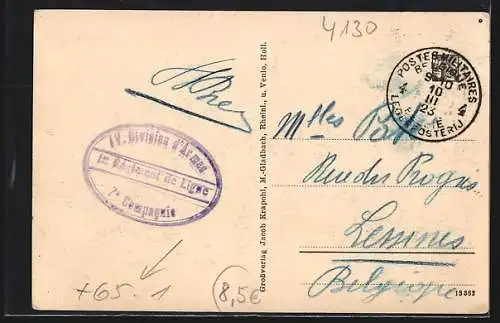 4130
POSTES MILITAIRES
BELGIQUE
10
III
23
4 4
LEGERPOSTERIJ
IV. Division d'Armee
1er Régiment de Ligne
7e Compagnie
Großverlag Jacob Krapohl, M.-Gladbach, Rheinl., u. Venlo, Holl.
Mlles
Rue du Progrès
Lessines
Belgique
+65.1
8,5€
15352